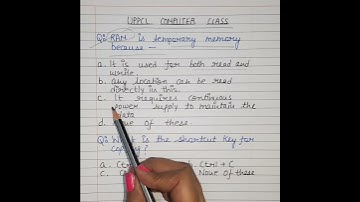 UPPCL COMPUTER CLASS
Q: RAM is temporary memory
because —
a. It is used for both read and
write.
b. Any location can be read
directly in this.
c. It requires continuous
power supply to maintain the
data
d. None of these.
Q: What is the shortcut key for
copying?
a. Ctrl Ctrl + C
c. None of these